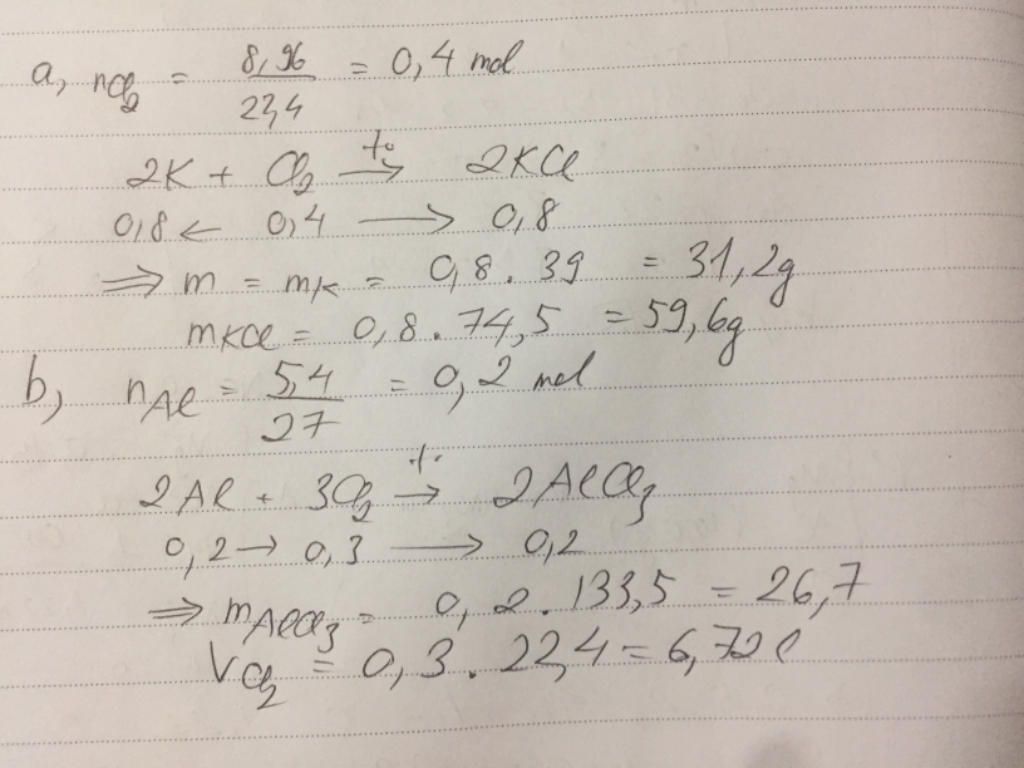 a, nCl2 = 8,96/22,4 = 0,4 mol
2K + Cl2 →(t°) 2KCl
0,8 ← 0,4 → 0,8
⇒ m = mK = 0,8 . 39 = 31,2g
mKCl = 0,8 . 74,5 = 59,6g
b, nAl = 5,4/27 = 0,2 mol
2Al + 3Cl2 →(t°) 2AlCl3
0,2 → 0,3 → 0,2
⇒ mAlCl3 = 0,2 . 133,5 = 26,7
VCl2 = 0,3 . 22,4 = 6,72l